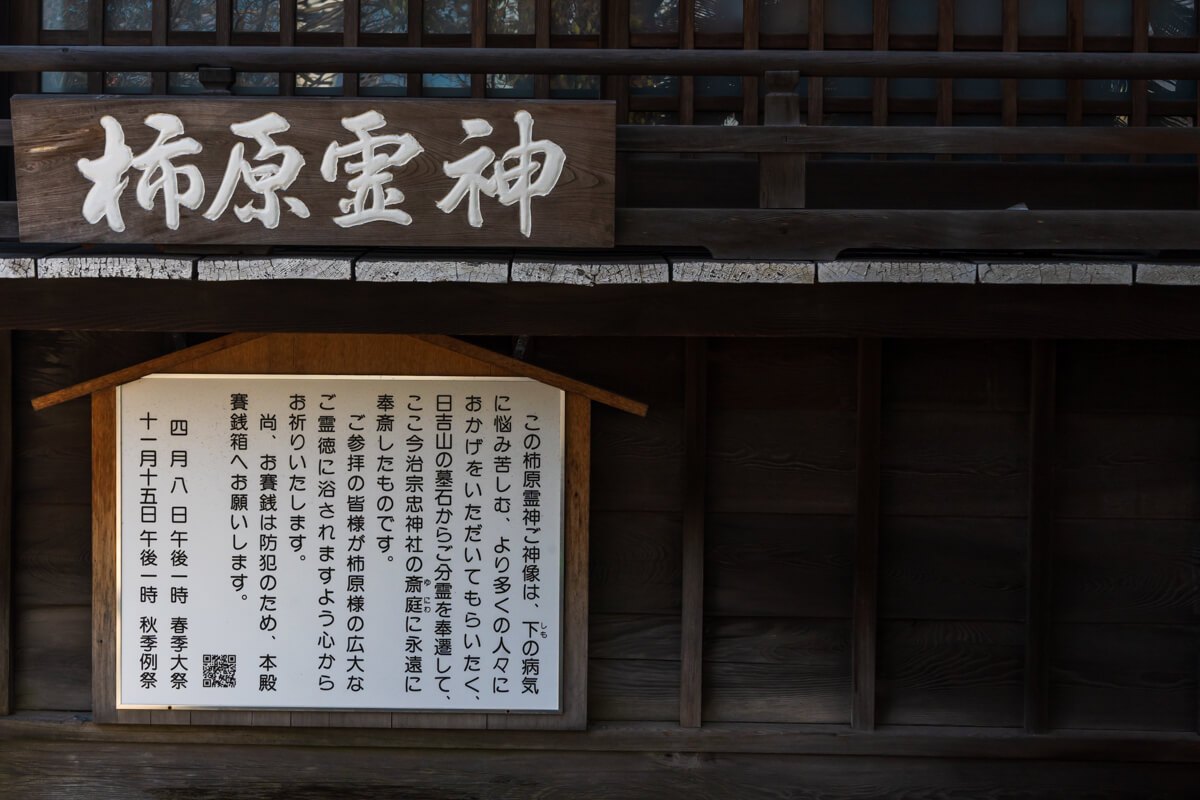 柿原霊神
この柿原霊神ご神像は、下の病気
に悩み苦しむ、より多くの人々に
おかげをいただいてもらいたく、
日吉山の墓石からご分霊を奉遷して、
ここ今治宗忠神社の斎庭に永遠に
奉斎したものです。
ご参拝の皆様が柿原様の広大な
ご霊徳に浴されますよう心から
お祈りいたします。
尚、お賽銭は防犯のため、本殿
賽銭箱へお願いします。
四月八日午後一時 春季大祭
十一月十五日午後一時 秋季例祭
しも
ゆにわ